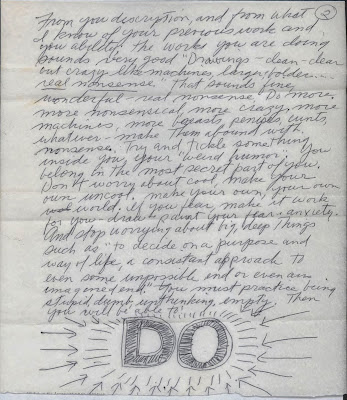 2
From your discription, and from what
I know of your previous work and
your ability; the works you are doing
sounds very good "Drawings – clean – clear
but crazy like machines, larger, bolder...
real nonsense." That sounds fine,
wonderful – real nonsense. Do more,
more nonsensical more crazy more
machines, more breasts, penises, cunts,
whatever – make them abound with
nonsense. Try and tickle something
inside you, your "weird humor." You
belong in the most secret part of you.
Don't worry about cool, make your
own uncool, make your own, your own
world. If you fear, make it work
for you – draw & paint your fear & anxiety.
And stop worrying about big, deep things
such as "to decide on a purpose and
way of life, a consistant approach to
even some impossible end or even an
imagined end." You must practice being
stupid, dumb, unthinking, empty. Then
you will be able to
DO